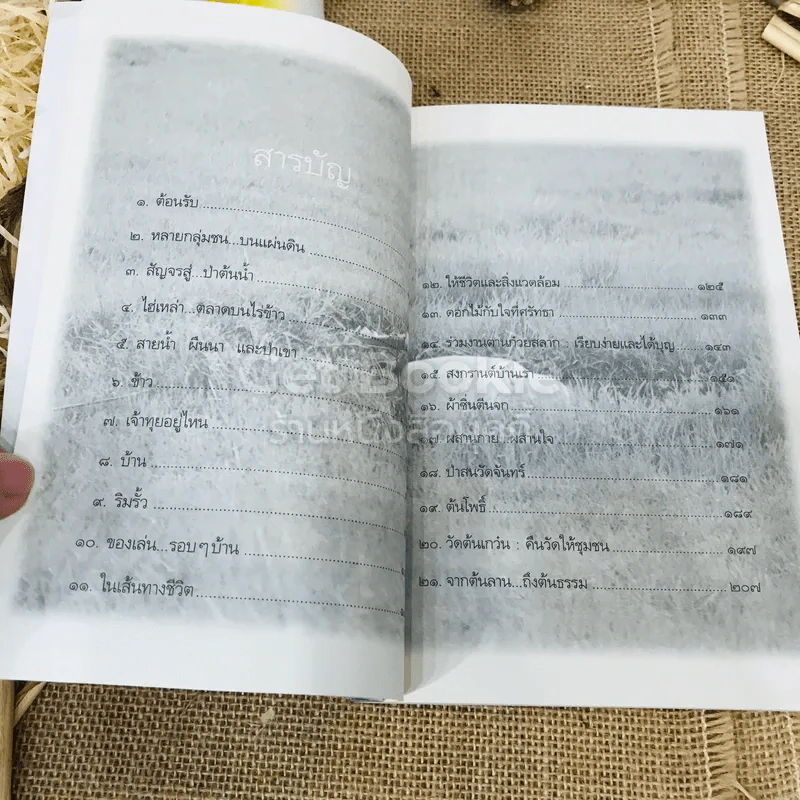 สารบัญ
๑. ต้อนรับ
๒. หลายกลุ่มชน...บนแผ่นดิน
๓. สัญจรสู่...ป่าต้นน้ำ
๔. ไฮ่เหล่า...ตลาดบนไร่ข้าว
๕. สายน้ำ ผืนนา และป่าเขา
๖. ข้าว
๗. เจ้าทุยอยู่ไหน
๘. บ้าน
๙. ริมรั้ว
๑๐. ของเล่น...รอบๆ บ้าน
๑๑. ในเส้นทางชีวิต
๑๒. ให้ชีวิตและสิ่งแวดล้อม ๑๒๕
๑๓. ดอกไม้กับใจที่ศรัทธา ๑๓๓
๑๔. ร่วมงานตานก๋วยสลาก : เรียบง่ายและได้บุญ ๑๔๓
๑๕. สงกรานต์บ้านเรา ๑๕๑
๑๖. ผ้าซิ่นตีนจก ๑๖๑
๑๗. ผสานกาย ..ผสานใจ ๑๗๑
๑๘. ป่าสนวัดจันทร์ ๑๘๑
๑๙. ต้นโพธิ์ ๑๘๙
๒๐. วัดต้นเกว๋น : คืนวัดให้ชุมชน ๑๙๗
๒๑. จากต้นลาน...ถึงต้นธรรม ๒๐๗